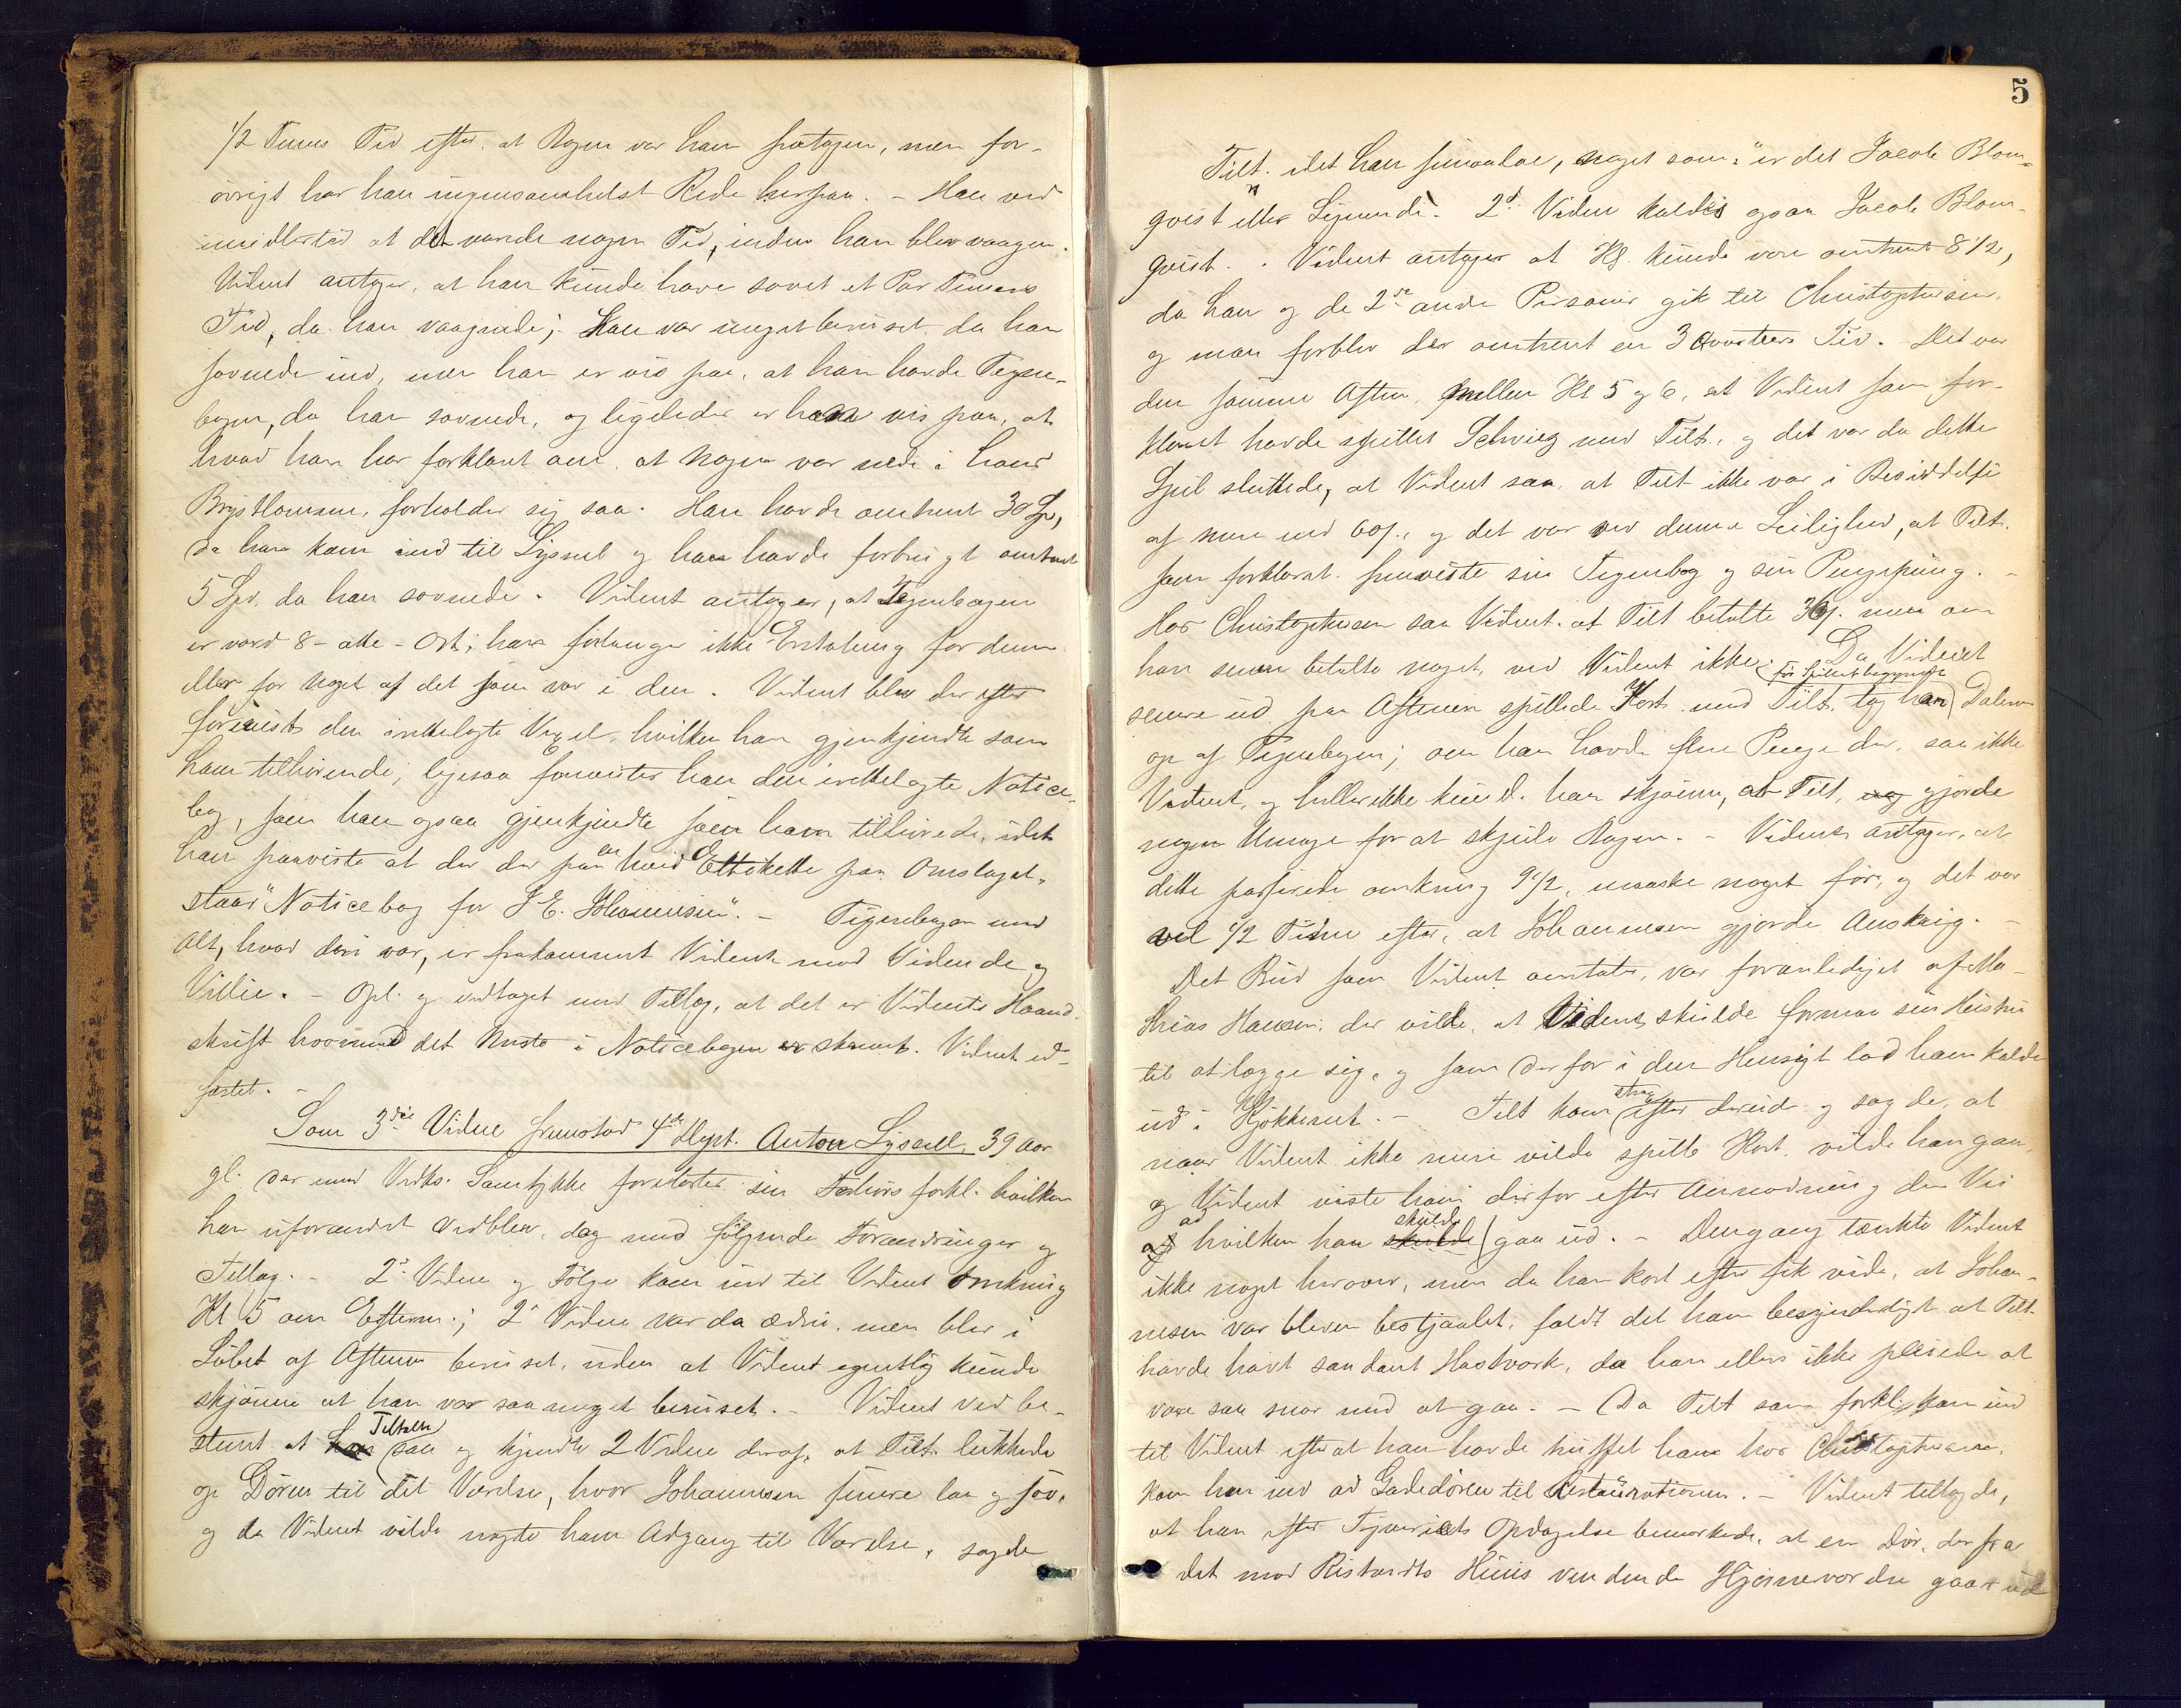 1/2 Times Tid efter, at Bogen var ham fratagen, men for-
øvrigt har han ingensomhelst Rede herpaa. - Han ved
imidlertid at det varede nogen Tid, inden han blev vaagen.
Vidnet antager, at han kunde have sovet et Par Timers
Tid, da han vaagnede; Han var meget beruset da han
sovnede ind, men han er vis paa, at han havde Tegne-
bogen, da han sovnede, og ligeledes er han vis paa, at
hvad han har forklaret om, at Bogen var nede i hans
Brystlomme, forholder sig saa. Han havde omtrent 30 Sp,
da han kom ind til Lyssell og han havde forbrugt omtrent
5 Spd. da han sovnede. Vidnet antager, at Tegnebogen
er værd 8 - otte - Ort; han forlanger ikke Erstatning for denne
eller for noget af det som var i den. Vidnet blev derefter
forevist den irettelagte Vexel, hvilken han gjenkjendte som
ham tilhørende; ligesaa forevistes han den irettelagte Notice-
bog, som han ogsaa gjenkjendte som ham tilhørende, idet
han paaviste at der der paa en hvid Ettikette paa Omslaget
staar "Noticebog for J E. Johannesen". - Tegnebogen med
Alt, hvad deri var, er frakommet Vidnet mod Vidende og
Villie. - Opl. og vedtaget med Tillæg, at det er Vidnets Haand-
skrift hvormed det Meste i Noticebogen er skrevet. Vidnet ed-
fæstet. -
Som 3die Vidne fremstod 4de Dept. Anton Lyssell, 39 Aar
gl. der med Vedks. Samtykke forelæstes sin Forhørsforkl. hvilken
han uforandret vedblev, dog med følgende Forandringer og
Tillæg. - 2det Vidne og Følge kom ind til Vidnet omkring
Kl 5 om Efterm.; 2det Vidne var da ædru, men blev i
Løbet af Aftenen beruset, uden at Vidnet egentlig kunde
skjønne at han var saa meget beruset. - Vidnet ved be-
stemt at Tiltalte saa og kjendte 2 Vidne deraf, at Tilt. lukkede
op Døren til det Værelse, hvor Johannesen senere laa og sov,
og da Vidnet vilde nægte ham Adgang til Værelset, sagde
5
Tilt. idet han smaalo, noget som: "er det Jacob Blom-
qvist eller Lignende. 2det Vidne kaldes ogsaa Jacob Blom-
qvist. - Vidnet antager at Kl. kunde være omtrent 8 1/2,
da han og de 2de andre Personer gik til Christophersen
og man forblev der omtrent en 3 Qvarters Tid. Det var
den samme Aften, mellem Kl 5 og 6, at Vidnet som for-
klaret havde spillet Schwieg med Tilt., og det var da dette
Spil sluttede, at Vidnet saa, at Tilt ikke var i Besiddelse
af mere end 60 s., og det var ved denne Leilighed, at Tilt.
som forklaret fremviste sin Tegnebog og sin Pengepung. -
Hos Christophersen saa Vidnet at Tilt betalte 36 s. men om
han senere betalte noget, ved Vidnet ikke. Da Vidnet
senere ud paa Aftenen spillede Kort med Tilt. tog han før Spillet begyndte Daleren
op af Tegnebogen; om han havde flere Penge der, saa ikke
Vidnet, og heller ikke kunde han skjønne, at Tilt. gjorde
nogen Umage for at skjule Bogen. - Vidnet antager, at
dette passerede omkring 9 1/2, maaske noget før, og det var
vel 1/2 Time efter, at Johannesen gjorde Anskrig. -
Det Bud som Vidnet omtaler, var foranlediget af Ma-
thias Hansen, der vilde, at Vidnet skulde formaa sin Hustru
til at lægge sig, og som derfor i den Hensigt lod ham kalde
ud i Kjøkkenet. - Tilt kom strax efter derud og sagde, at
naar Vidnet ikke mere vilde spille Kort, vilde han gaa,
og Vidnet viste ham derfor efter Anmodning den Vei
ad hvilken han skulde gaa ud. - Dengang tænkte Vidnet
ikke noget herover, men da han kort efter fik vide, at Johan-
nesen var bleven bestjaalet, faldt det ham besynderligt at Tilt.
havde havt saadant Hastværk, da han ellers ikke pleiede at
være saa snar med at gaa. - Da Tilt som forkl. kom ind
til Vidnet efterat han havde truffet ham hos Christophersen
kom han ind ad Gadedøren til Restaurationen. - Vidnet tillagde,
at han efter Tyveriets Opdagelse bemærkede, at en Dør, der fra
det mod Ristvedts Huus vendende Hjørneværelse gaar ud